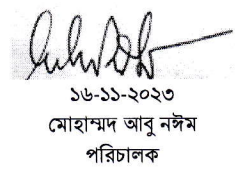 ১৬-১১-২০২৩
মোহাম্মদ আবু নঈম
পরিচালক